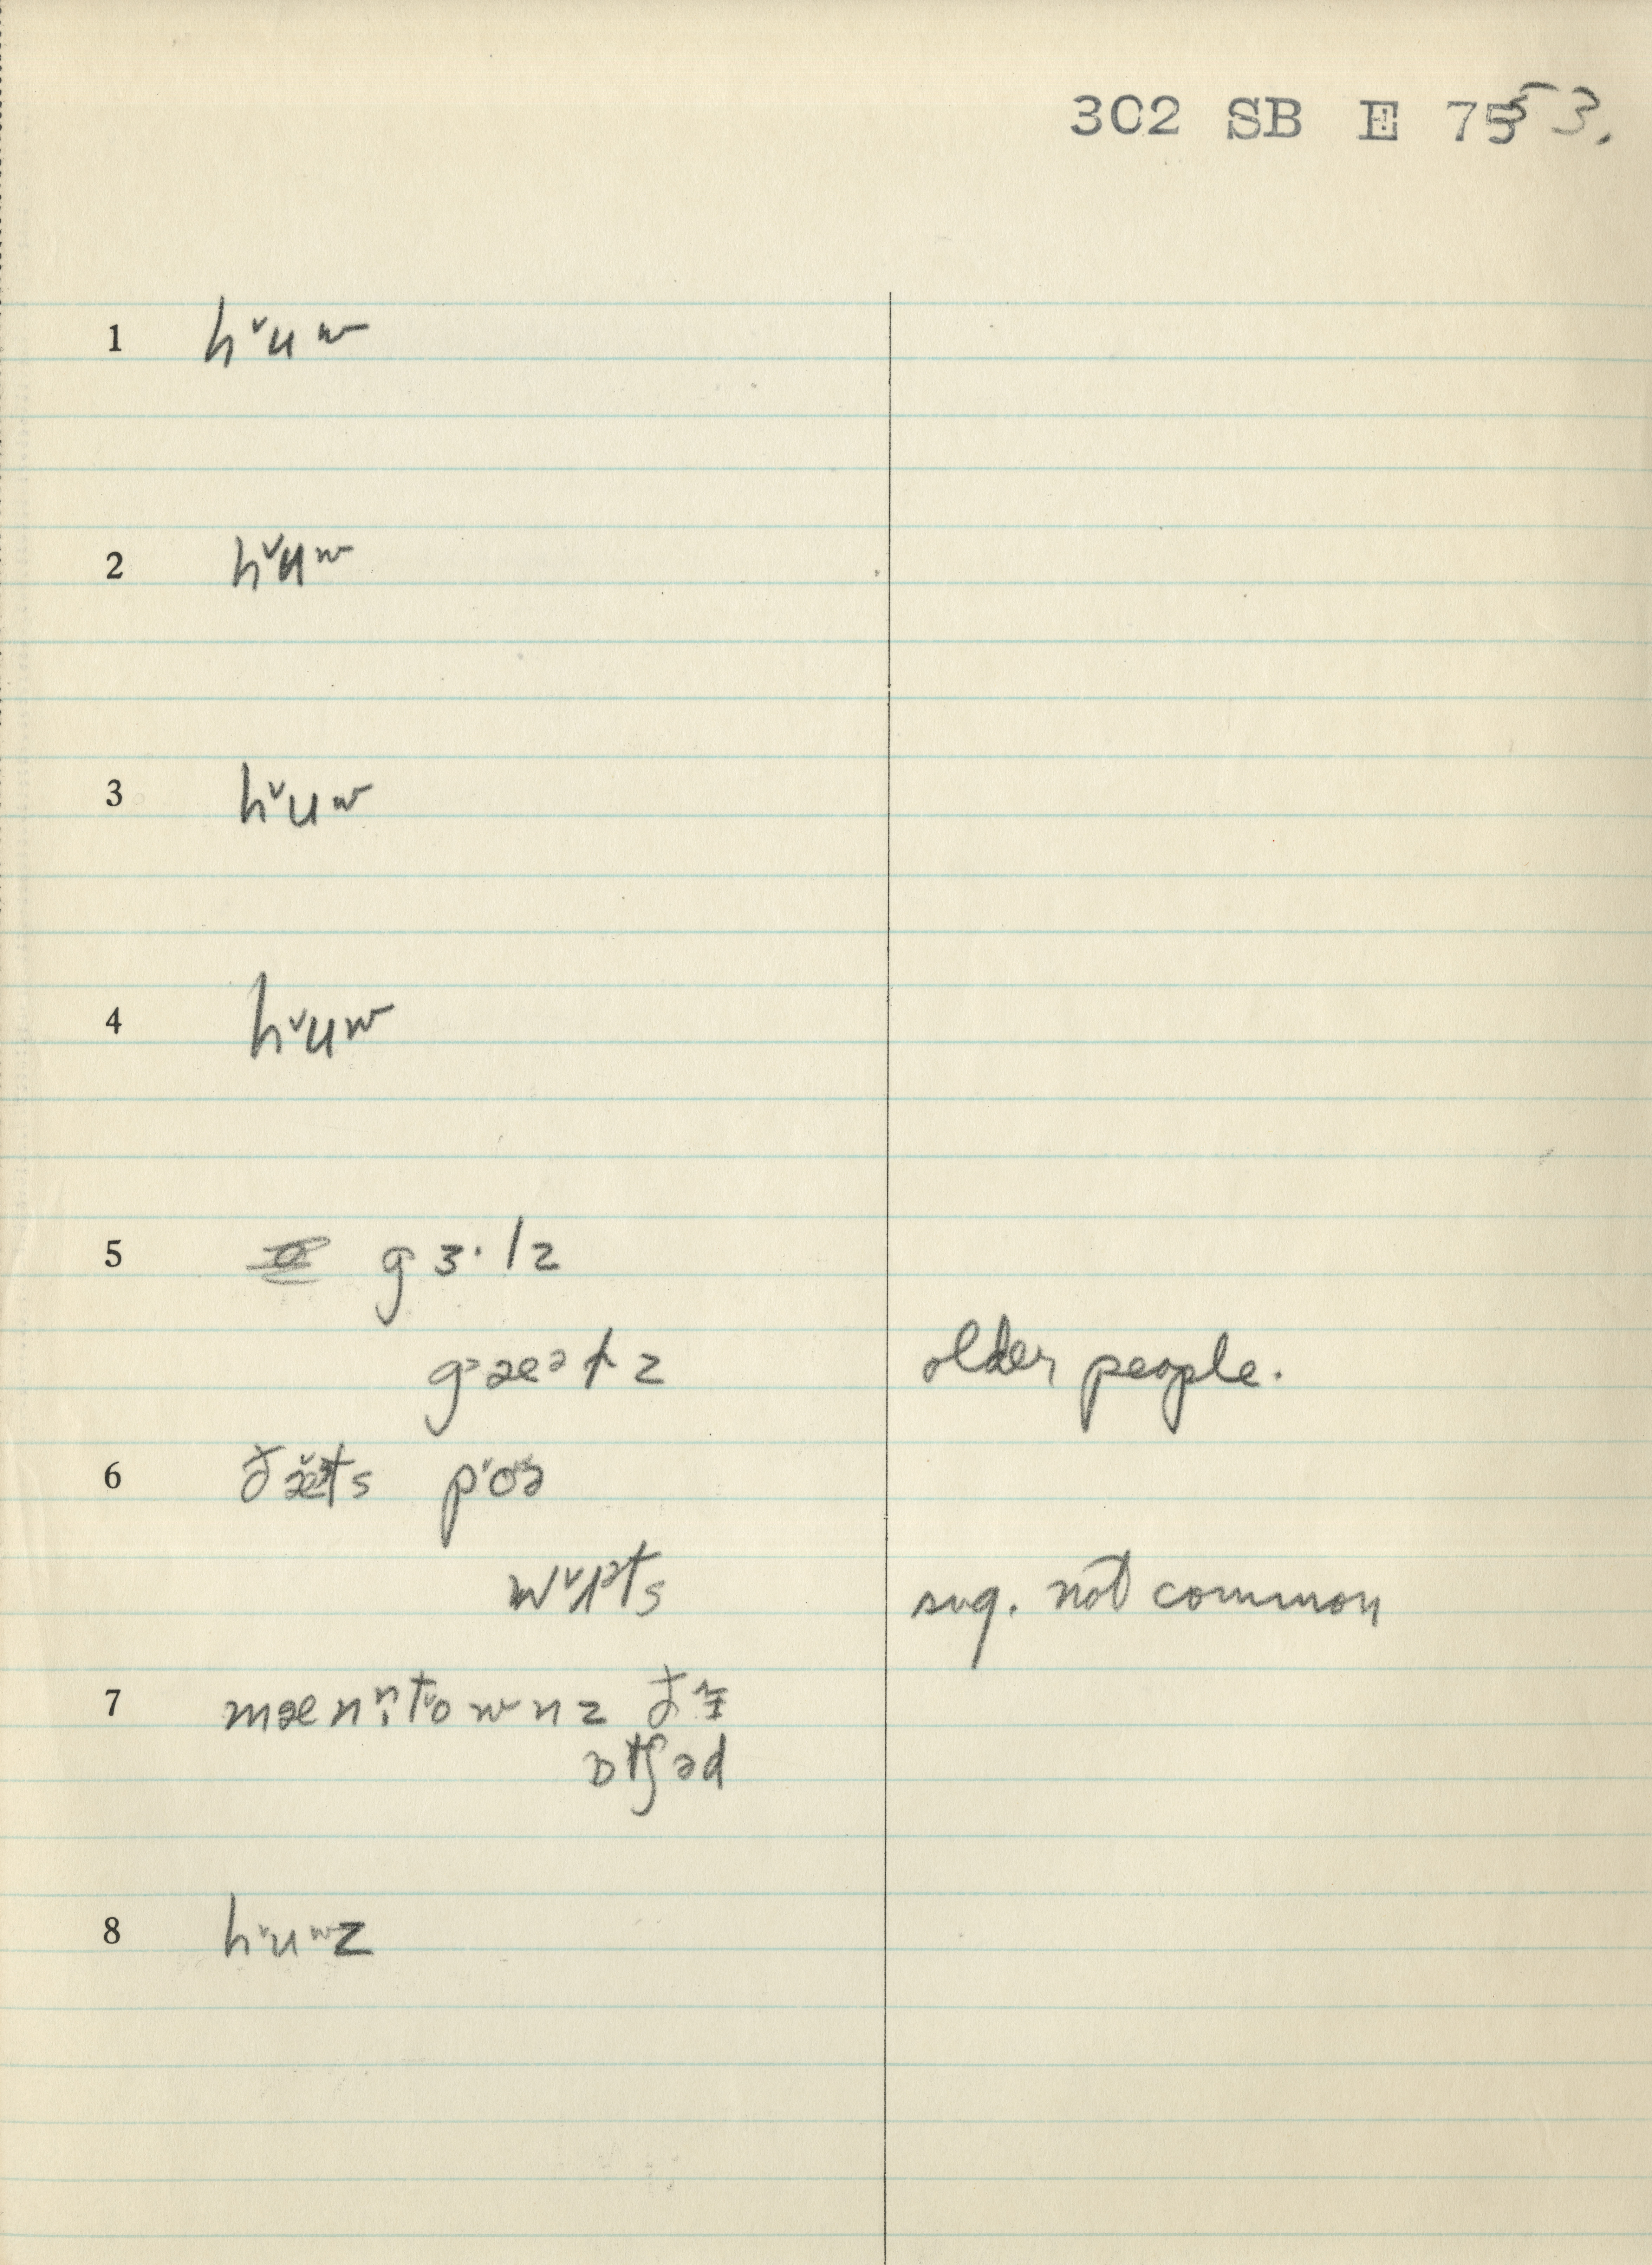 302 SB E 7553.
1 hᵛuʷ
2 hᵛuʷ
3 hᵛuʷ
4 hᵛuʷ
5 gɜ·lz
gᵊæᵊɫz older people.
6 ðæ̌ᵊts pᵛoə
wᵛɪᵊts sug. not common
7 mænn̩tᵛownz ðɪ
ɒtʃəd
8 hᵛuʷz